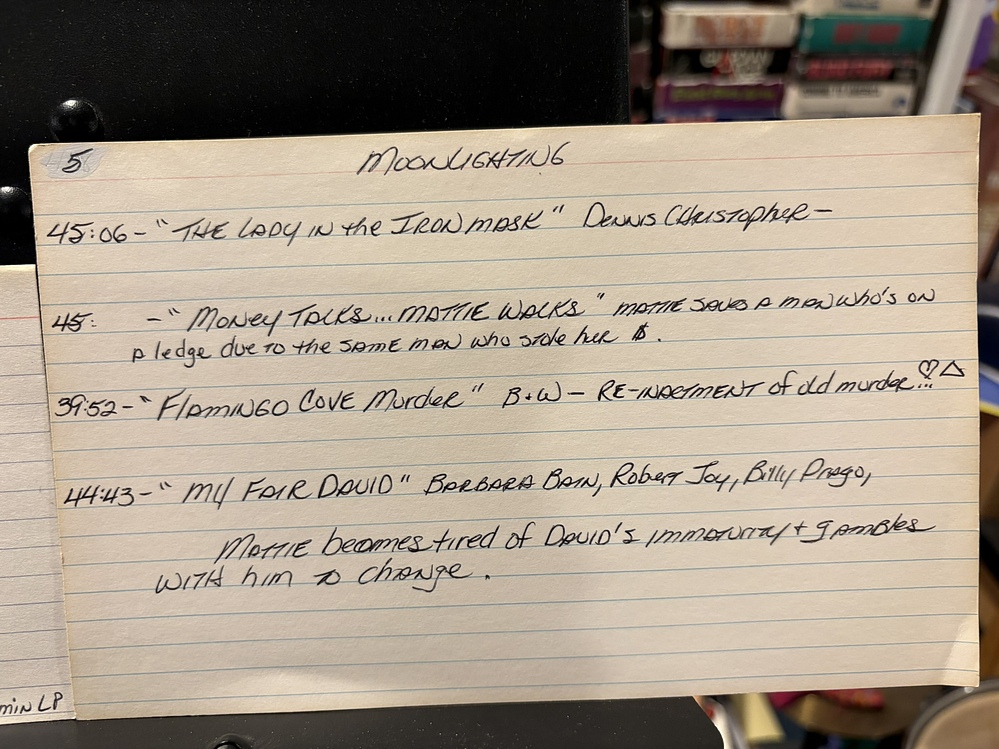 5
MOONLIGHTING
45:06 - "THE LADY IN the IRON MASK" DENNIS CHRISTOPHER -
45: - "MONEY TALKS... MATTIE WALKS" MATTIE SAVES A MAN WHO'S ON
A ledge due to the SAME MAN who stole her $.
39:52 - "FLAMINGO COVE MURDER" B+W - RE-INACTMENT of old murder...♡△
44:43 - "MY FAIR DAVID" BARBARA BAIN, Robert Joy, Billy Drago,
MATTIE becomes tired of DAVID'S IMMATURITY + gAMBLES
WITH him TO change.
min LP